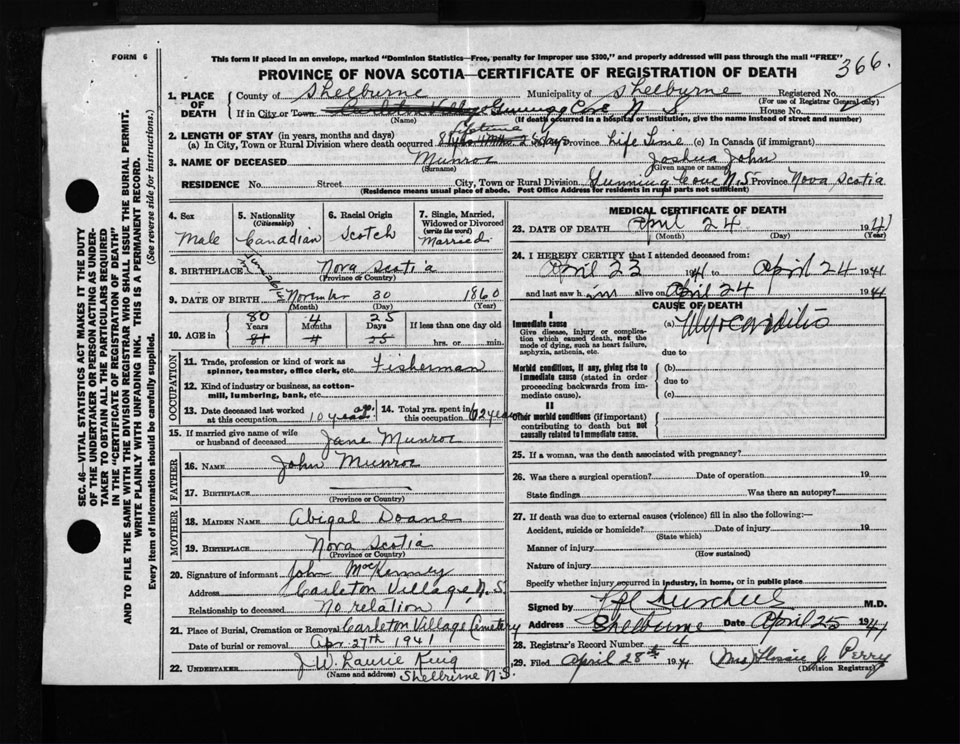 FORM 6
This form if placed in an envelope, marked "Dominion Statistics—Free, penalty for improper use $300," and properly addressed will pass through the mail "FREE"
366.
PROVINCE OF NOVA SCOTIA—CERTIFICATE OF REGISTRATION OF DEATH
1. PLACE OF DEATH
County of Shelburne Municipality of Shelburne Registered No.
(For use of Registrar General only)
If in City or Town Carleton Village Gunning Cove, N. S. House No.
(Name) (If death occurred in a hospital or institution, give the name instead of street and number)
2. LENGTH OF STAY (in years, months and days)
(a) In City, Town or Rural Division where death occurred lifetime Province Life Time (c) In Canada (if immigrant)
3. NAME OF DECEASED Munroe Joshua John
(Surname) (Given name or names)
RESIDENCE No. Street City, Town or Rural Division Gunning Cove N.S Province Nova Scotia
(Residence means usual place of abode. Post Office Address for residents in rural parts not sufficient)
4. Sex
Male
5. Nationality
(Citizenship)
Canadian
6. Racial Origin
Scotch
7. Single, Married, Widowed or Divorced
(write the word)
Married
8. BIRTHPLACE Nova Scotia
(Province or Country)
9. DATE OF BIRTH November 30 1860
(Month) (Day) (Year)
10. AGE in 80 4 25
Years Months Days If less than one day old
81 4 25 hrs. or min.
OCCUPATION
11. Trade, profession or kind of work as spinner, teamster, office clerk, etc. Fisherman
12. Kind of industry or business, as cotton-mill, lumbering, bank, etc.
13. Date deceased last worked at this occupation 10 years ago.
14. Total yrs. spent in this occupation 62 years
15. If married give name of wife or husband of deceased Jane Munroe
FATHER
16. NAME John Munroe
17. BIRTHPLACE
(Province or Country)
MOTHER
18. MAIDEN NAME Abigal Doane
19. BIRTHPLACE Nova Scotia
(Province or Country)
20. Signature of informant John McKenney
Address Carleton Village, N. S.
Relationship to deceased No relation
21. Place of Burial, Cremation or Removal Carleton Village Cemetery
Date of burial or removal Apr. 27th 1941
22. UNDERTAKER J. W. Laurie King
(Name and address) Shelburne N.S.
MEDICAL CERTIFICATE OF DEATH
23. DATE OF DEATH April 24 1941
(Month) (Day) (Year)
24. I HEREBY CERTIFY that I attended deceased from:
April 23 1941 to April 24 1941
and last saw him alive on April 24 1941
CAUSE OF DEATH
I
Immediate cause
Give disease, injury or complication which caused death, not the mode of dying, such as heart failure, asphyxia, asthenia, etc.
(a) Myocarditis
due to
Morbid conditions, if any, giving rise to immediate cause (stated in order proceeding backwards from immediate cause).
(b)
due to
(c)
II
Other morbid conditions (if important) contributing to death but not causally related to immediate cause.
25. If a woman, was the death associated with pregnancy?
26. Was there a surgical operation? Date of operation 19
State findings Was there an autopsy?
27. If death was due to external causes (violence) fill in also the following:—
Accident, suicide or homicide? Date of injury 19
(State which)
Manner of injury
(How sustained)
Nature of injury
Specify whether injury occurred in industry, in home, or in public place
Signed by M.D.
Address Shelburne Date April 25 1941
28. Registrar's Record Number 4
29. Filed April 28th 1941 (Mrs) Flossie J Perry
(Division Registrar)
SEC. 46—VITAL STATISTICS ACT MAKES IT THE DUTY
OF THE UNDERTAKER OR PERSON ACTING AS UNDERTAKER TO OBTAIN ALL THE PARTICULARS REQUIRED
IN THE "CERTIFICATE OF REGISTRATION OF DEATH"
AND TO FILE THE SAME WITH THE DIVISION REGISTRAR WHO SHALL ISSUE THE BURIAL PERMIT.
WRITE PLAINLY WITH UNFADING INK. THIS IS A PERMANENT RECORD.
Every item of information should be carefully supplied. (See reverse side for instructions.)